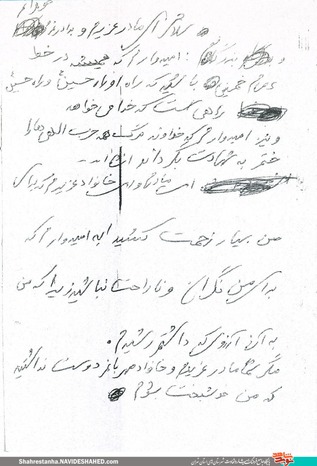 سلام ای مادر عزیزم و برادر
و امیدوارم که همیشه در خط
امام خمینی باشید که راه او راه حسین و راه حسین
راهی است که خدا می‌خواهد
و نیز امیدوارم که خداوند مرگ همه حزب اللهی ها را
ختم به شهادت بگرداند
ای خانواده عزیزم که برای
من بسیار زحمت کشیدید امیدوارم که
برای من نگران و ناراحت نباشید زیرا که من
به آن آرزوی که داشتم رسیدم.
مگر شما مادر عزیزم و خانواده مهربانم دوست نداشتید
که من خوشبخت شوم
Shahrestanha.NAVIDESHAHED.com